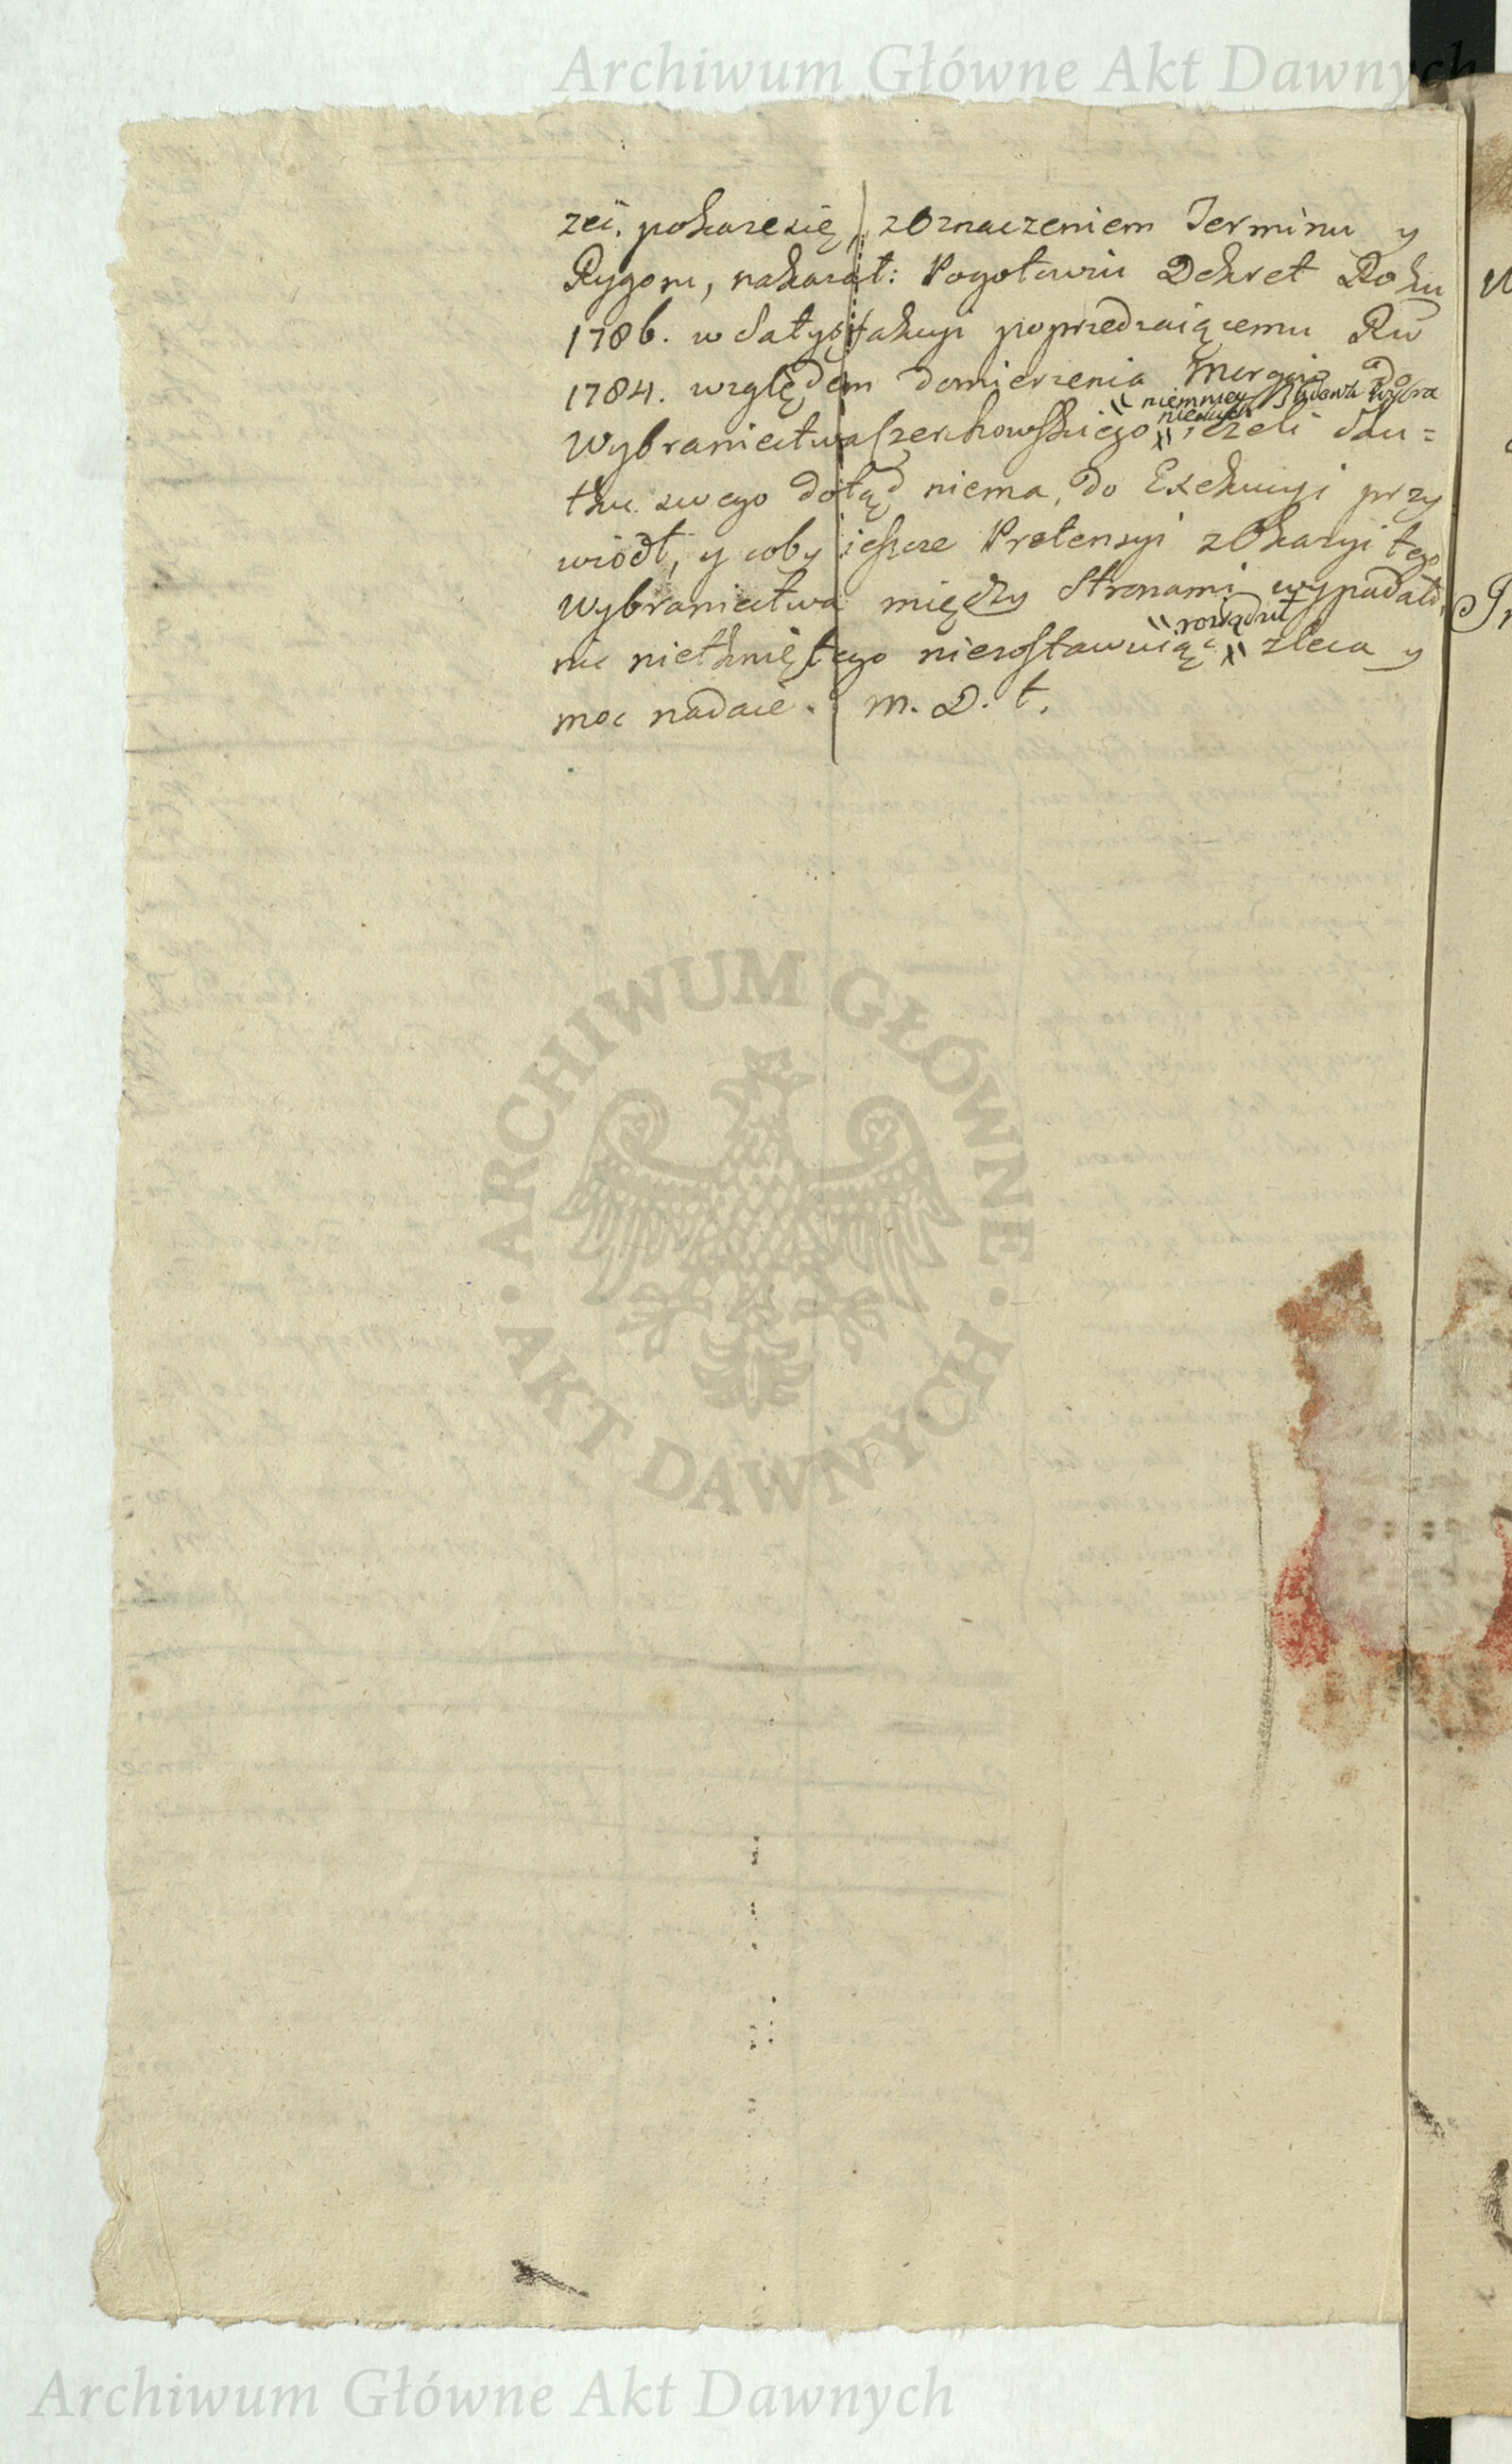 Archiwum Główne Akt Dawnych
zei. pokaze się, z Oznaczeniem Terminu y
Rygoru, nakazał: Pogotowiu Dekret Roku
1786. w Satysfakcyi poprzedzaiącemu Ru
1784. względem domierzenia Morgów do
" niemniey
Wybraniectwa Szerkowskiego " ieżeli Sku=
tku swego dotąd niema, do Exekucyi przy
wiódł, y coby ieszcze Pretensyi z Okazyi tego
Wybraniectwa między Stronami wypadało,
" rozsądził
nic nietkniętego niezostawuiąc " zleca y
moc nadaie. M. D. t.
ARCHIWUM GŁÓWNE
AKT DAWNYCH
Archiwum Główne Akt Dawnych